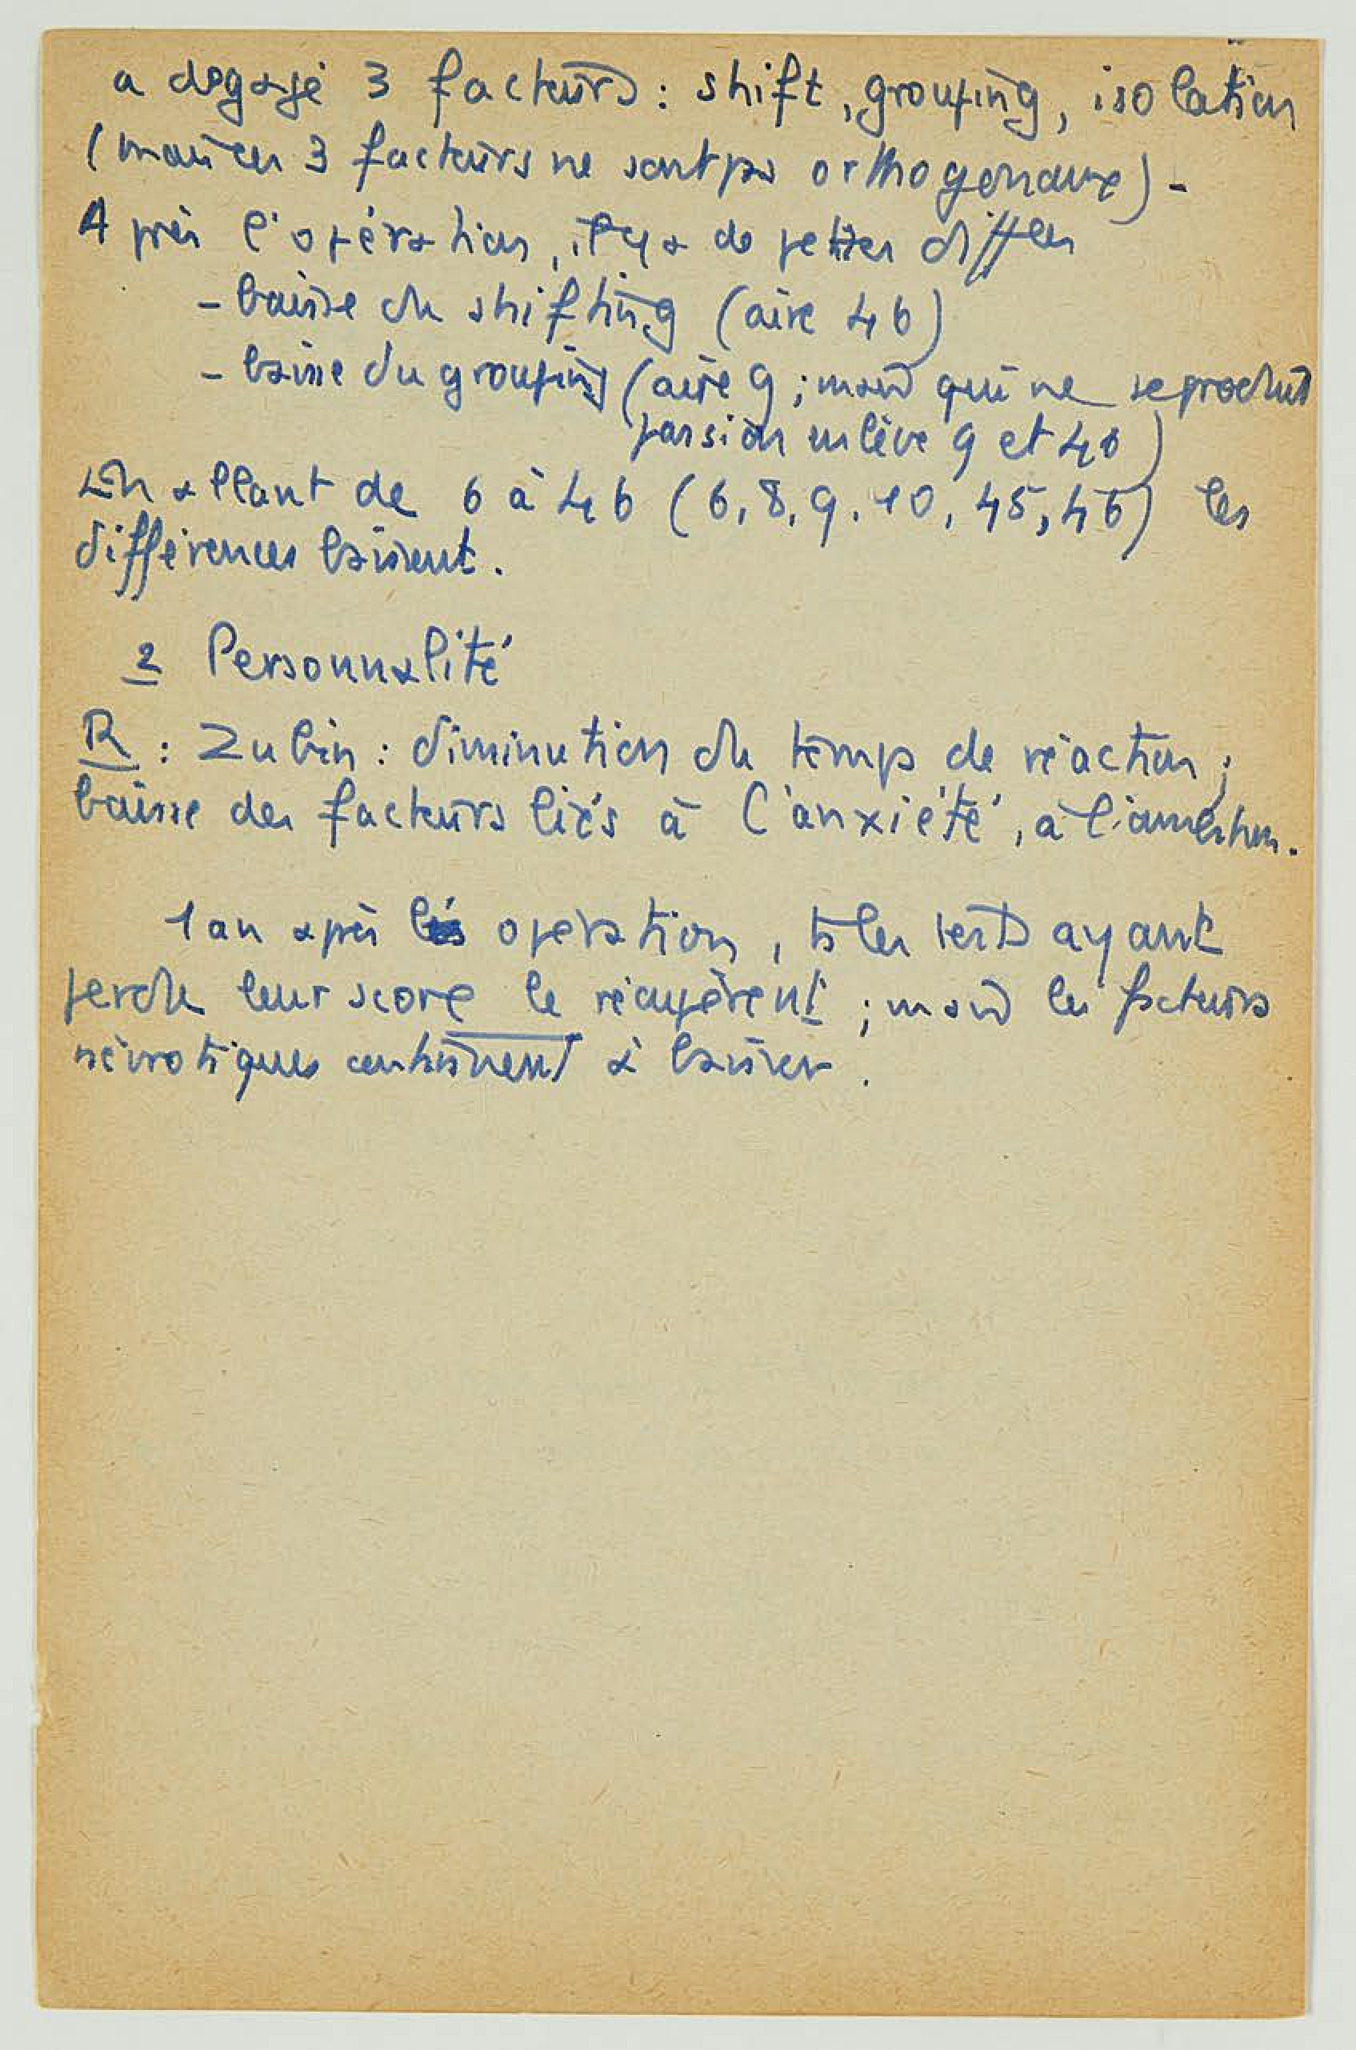 a dégagé 3 facteurs : shift, grouping, isolation
(mais ces 3 facteurs ne sont pas orthogonaux) -
Après l'opération, il y a de petites diffces
- baisse du shifting (aire 46)
- baisse du grouping (aire 9 ; mais qui ne se produit
pas si on enlève 9 et 46)
En allant de 6 à 46 (6, 8, 9, 10, 45, 46) les
différences baissent.
2 Personnalité
R : Zubin : diminution du temps de réaction ;
baisse des facteurs liés à l'anxiété, à l'
1 an après opération, ts les tests ayant
perdu leur score le récupèrent ; mais les facteurs
névrotiques continuent à baisser.